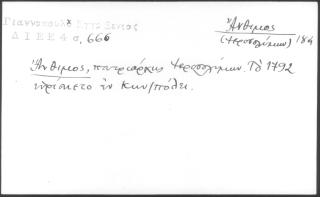 Γιαννοπούλ Επτα
ΔΙΕΕ 4 σ, 666
Ἄνθιμος
(Ἱεροσολύμων) 184
Ἄνθιμος, πατριάρχης Ἱεροσολύμων. Τὸ 1792
εὑρίσκετο ἐν Κων/πόλει.